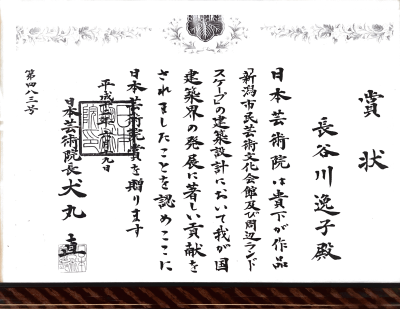 賞状
長谷川逸子殿
日本芸術院は貴下が作品
「新潟市民芸術文化会館及び周辺ランド
スケープ」の建築設計において我が国
建築界の発展に著しい貢献を
されましたことを認めここに
日本芸術院賞を贈ります
平成十二年 月 九日
日本芸術院長 犬丸直
第四八三号